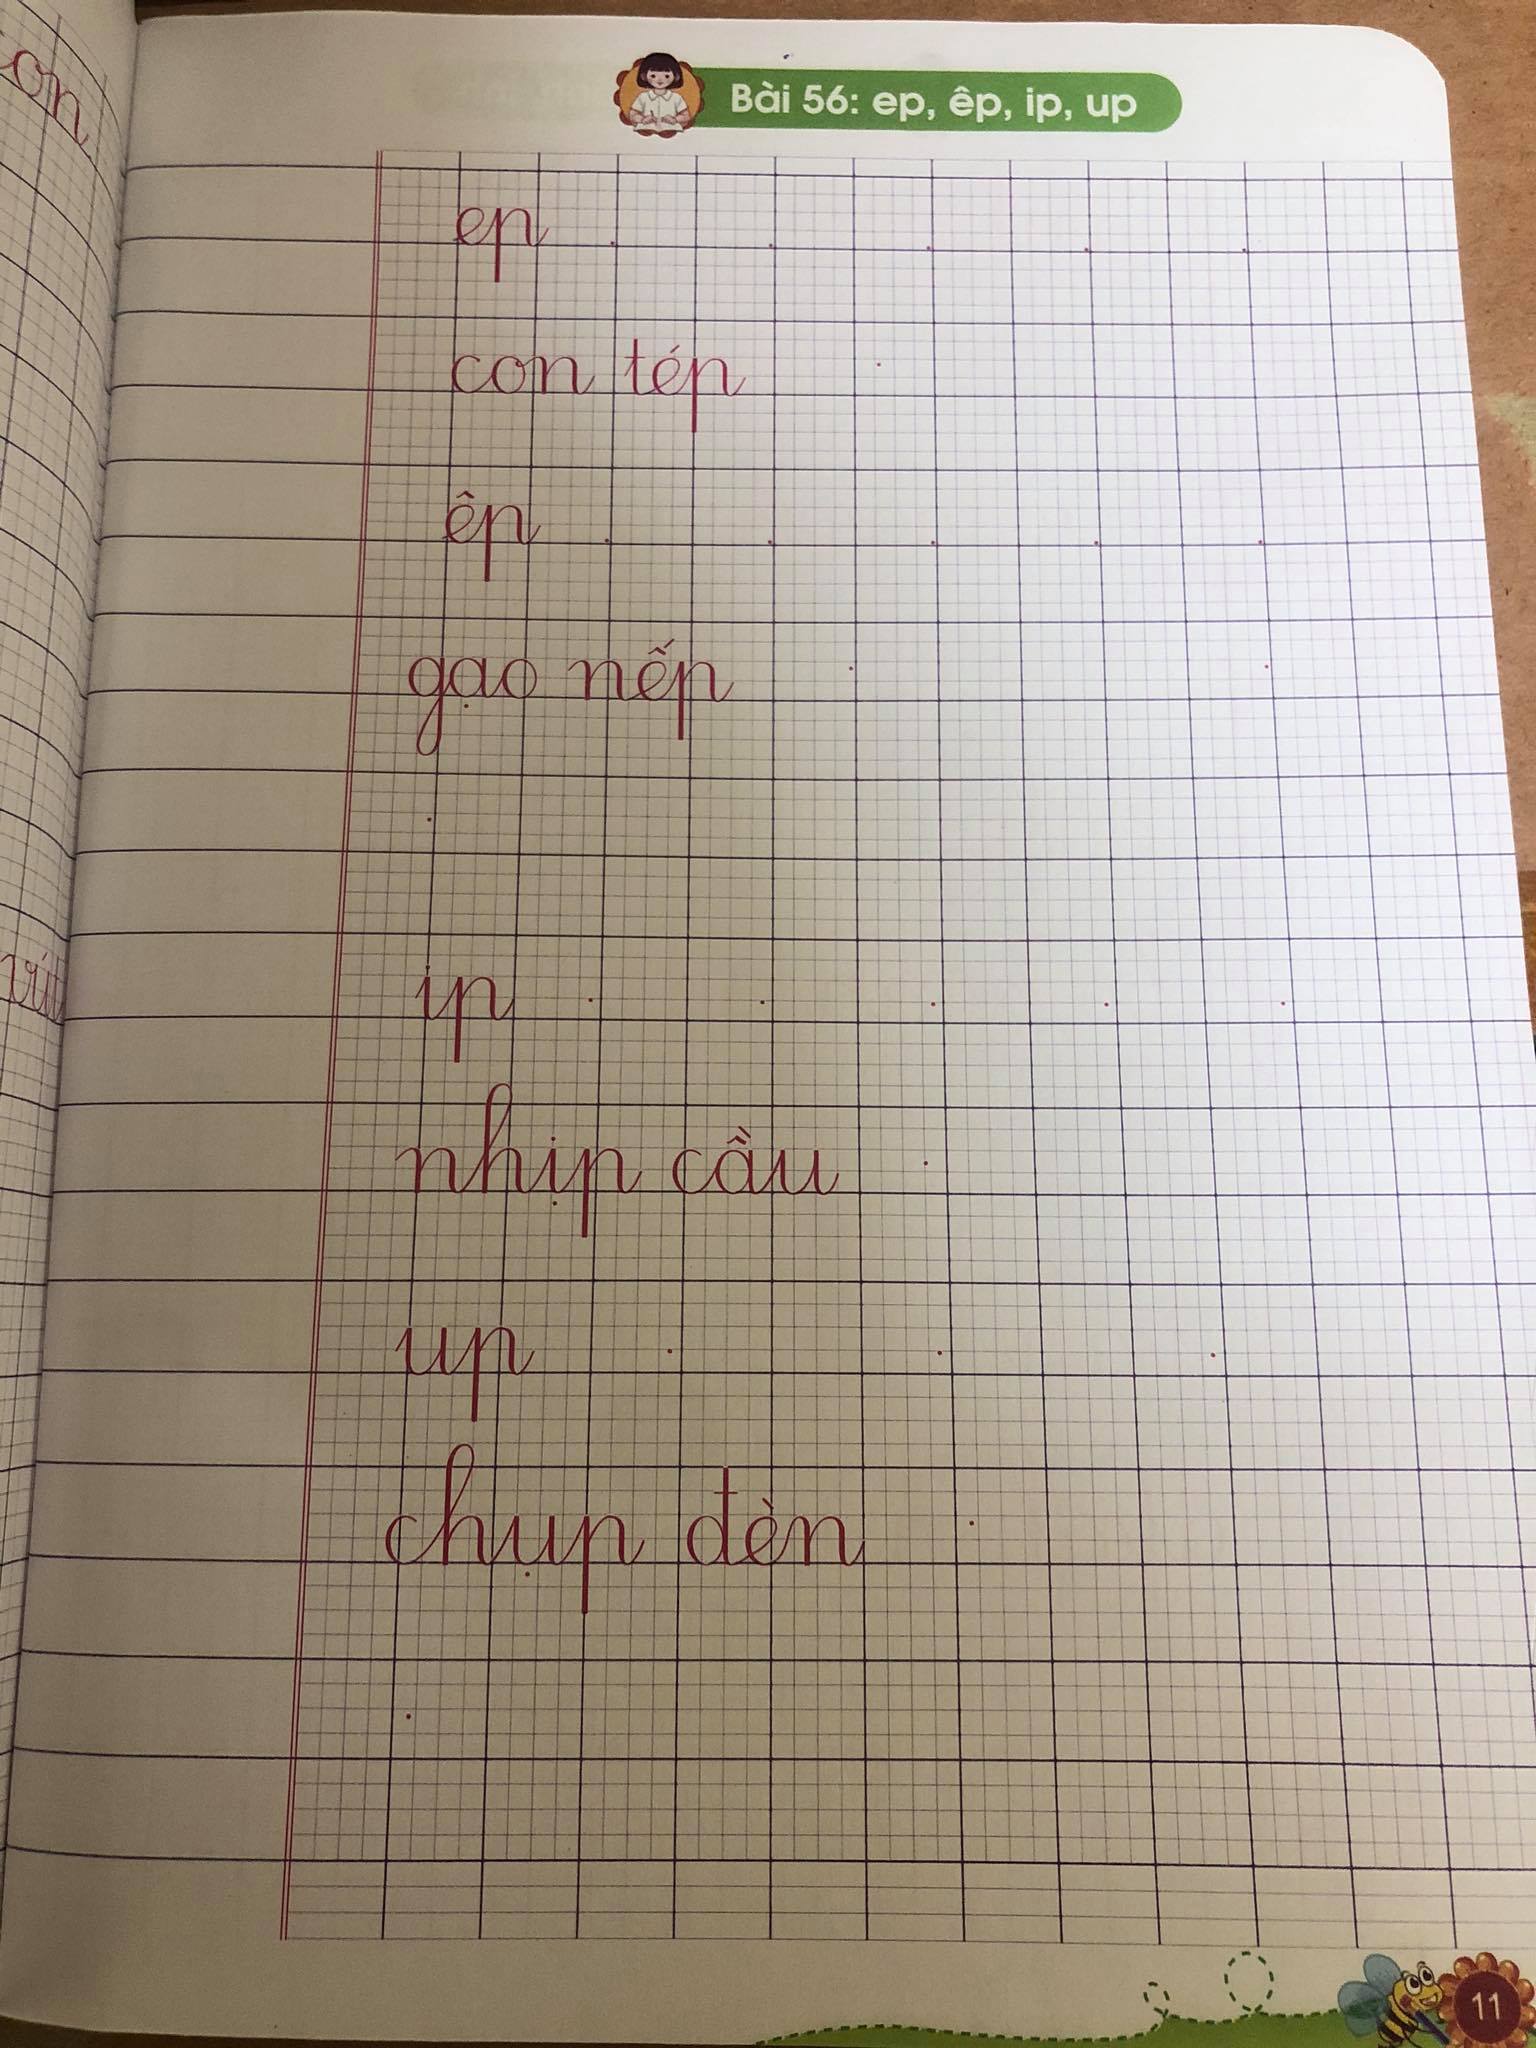 Bài 56: ep, êp, ip, up
ep
con tép
êp
gạo nếp
ip
nhịp cầu
up
chụp đèn
11